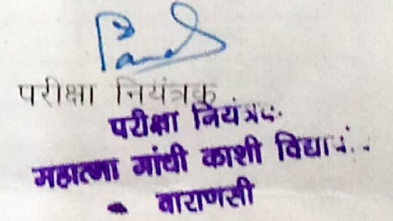 परीक्षा नियंत्रक
परीक्षा नियंत्रक
महात्मा गांधी काशी
वाराणसी